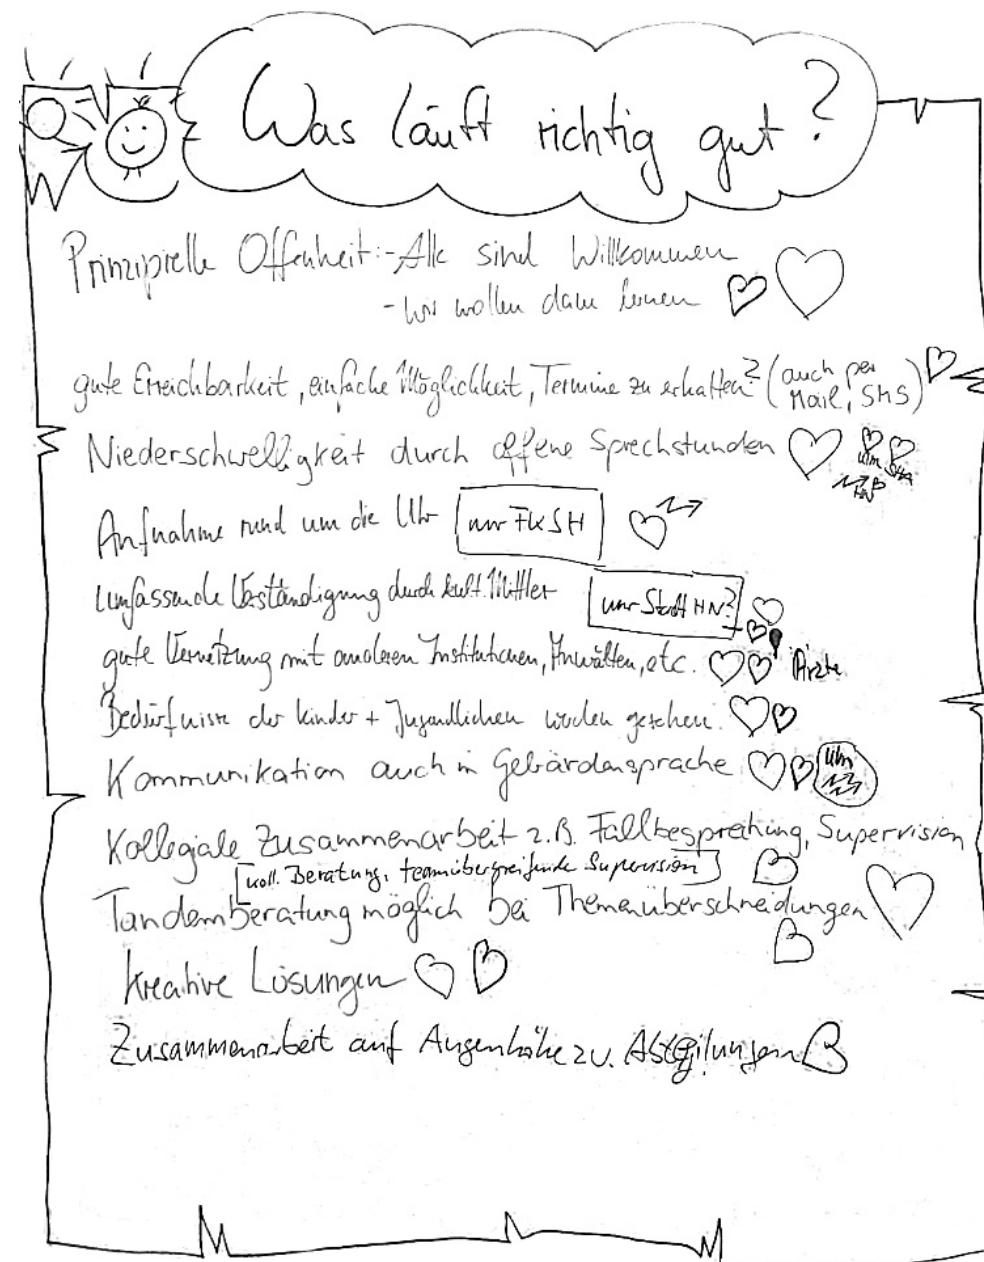 Was läuft richtig gut?
Prinzipielle Offenheit: - Alle sind Willkommen
- wir wollen dazu lernen
gute Erreichbarkeit, einfache Möglichkeit, Termine zu erhalten? (auch per Mail, SMS)
Niederschwelligkeit durch offene Sprechstunden
Ulm SHA
HN
Aufnahme rund um die Uhr nur FKSH
umfassende Verständigung durch kult. Mittler nur Stadt HN?
gute Vernetzung mit anderen Institutionen, Anwälten, etc. Ärzte
Bedürfnisse der Kinder + Jugendlichen werden gesehen.
Kommunikation auch in Gebärdensprache Ulm
Kollegiale Zusammenarbeit z.B. Fallbesprechung, Supervision
[koll. Beratung, teamübergreifende Supervision]
Tandemberatung möglich bei Themenüberschneidungen
kreative Lösungen
Zusammenarbeit auf Augenhöhe zw. Abteilungen